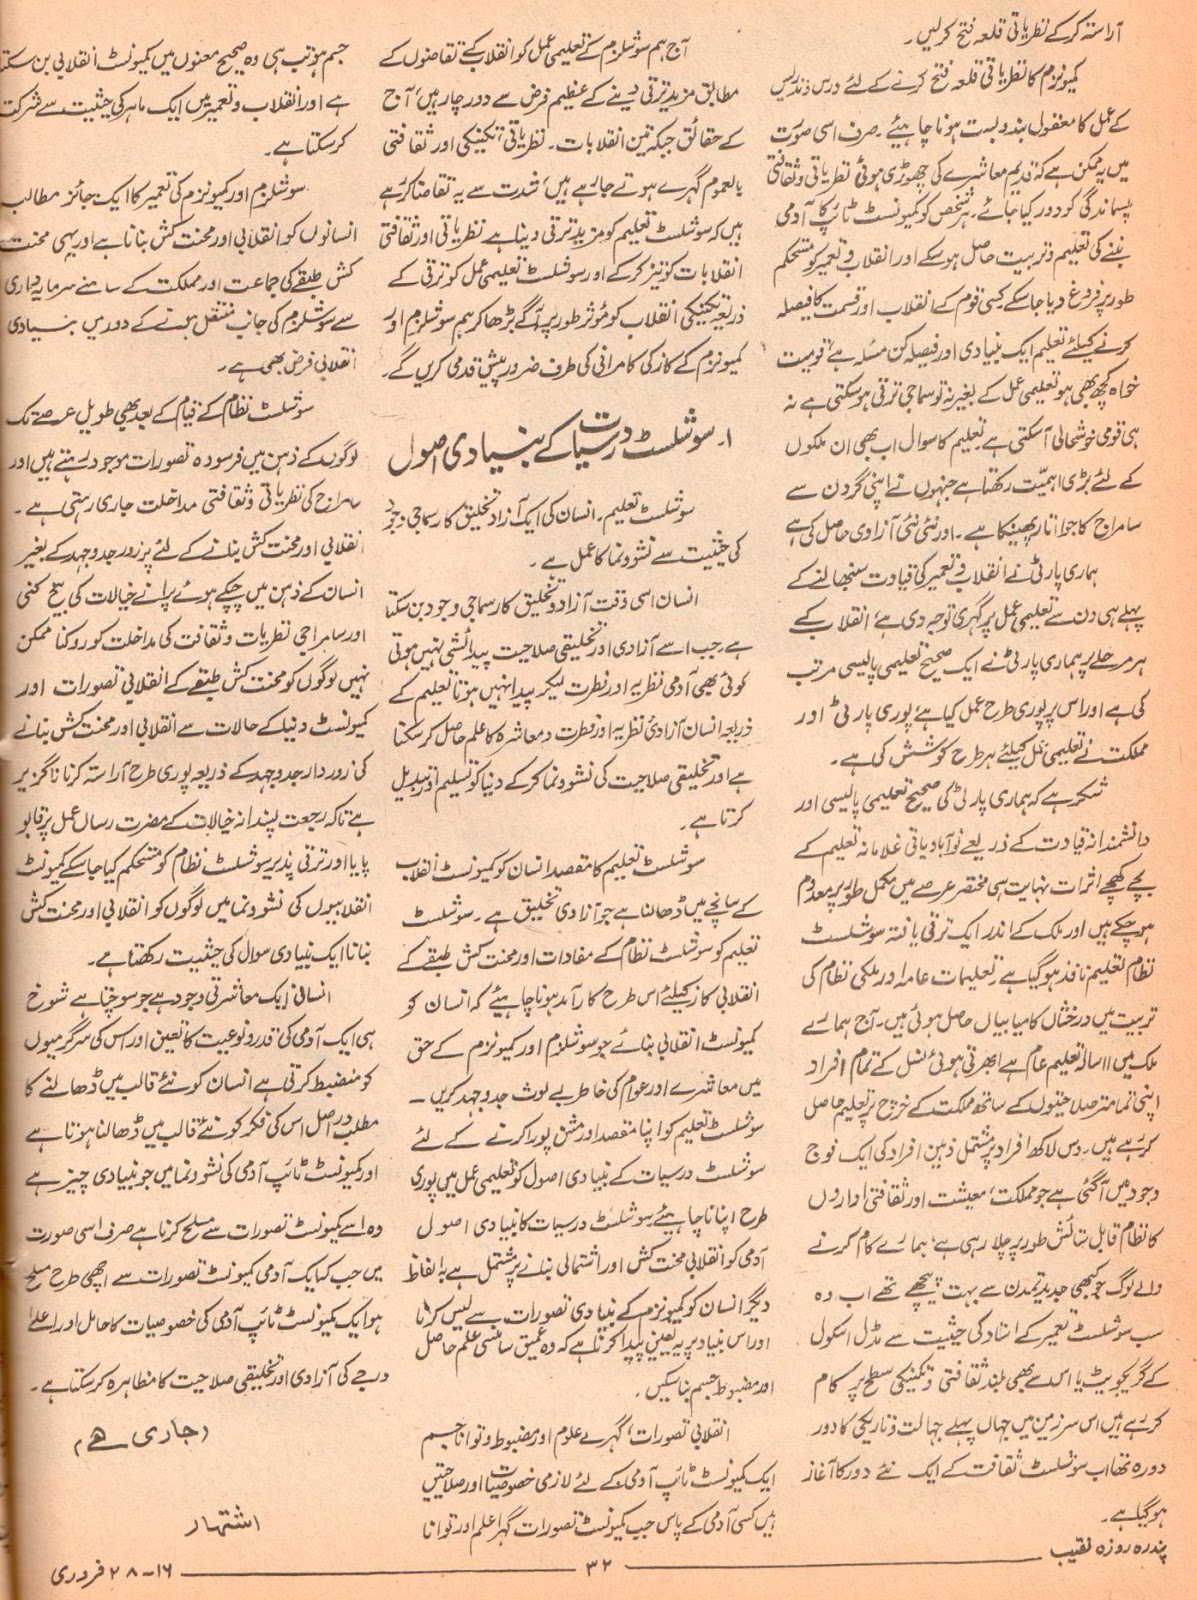 آراستہ کر کے نظریاتی قلعہ فتح کرلیں۔
کمیونزم کا نظریاتی قلعہ فتح کرنے کے لئے درس و تدریس
کے عمل کا معقول بندوبست ہونا چاہیئے۔ صرف اسی صورت
میں یہ ممکن ہے کہ قدیم معاشرے کی چھوڑی ہوئی نظریاتی و ثقافتی
پسماندگی کو دور کیا جائے۔ ہر شخص کو کمیونسٹ ٹائپ کا آدمی
بننے کی تعلیم و تربیت حاصل ہوسکے اور انقلاب و تعمیر کو مستحکم
طور پر فروغ دیا جاسکے کسی قوم کے انقلاب اور قسمت کا فیصلہ
کرنے کیلئے تعلیم ایک بنیادی اور فیصلہ کن مسئلہ ہے، قومیت
خواہ کچھ بھی ہو تعلیمی عمل کے بغیر نہ تو سماجی ترقی ہوسکتی ہے نہ
ہی قومی خوشحالی آسکتی ہے تعلیم کا سوال اب بھی ان ملکوں
کے لئے بڑی اہمیّت رکھتا ہے جنہوں نے اپنی گردن سے
سامراج کا جوا اتار پھینکا ہے۔ اور نئی نئی آزادی حاصل کی ہے
ہماری پارٹی نے انقلاب و تعمیر کی قیادت سنبھالنے کے
پہلے ہی دن سے تعلیمی عمل پر گہری توجہ دی ہے، انقلاب کے
ہر مرحلے پر ہماری پارٹی نے ایک صحیح تعلیمی پالیسی مرتب
کی ہے اور اس پر پوری طرح عمل کیا ہے، پوری پارٹی اور
مملکت نے تعلیمی عمل کیلئے ہر طرح کوشش کی ہے۔
شکر ہے کہ ہماری پارٹی کی صحیح تعلیمی پالیسی اور
دانشمندانہ قیادت کے ذریعے نوآبادیاتی غلامانہ تعلیم کے
بچے کھچے اثرات نہایت ہی مختصر عرصے میں مکمل طور پر معدوم
ہوچکے ہیں اور ملک کے اندر ایک ترقی یافتہ سوشلسٹ
نظام تعلیم نافذ ہوگیا ہے۔ تعلیمات عامہ اور ملکی نظام کی
تربیت میں درخشاں کامیابیاں حاصل ہوئی ہیں۔ آج ہمارے
ملک میں ۱۱ سالہ تعلیم عام ہے ابھرتی ہوئی نسل کے تمام افراد
اپنی تمامتر صلاحیتوں کے ساتھ مملکت کے خرچ پر تعلیم حاصل
کر رہے ہیں۔ دس لاکھ افراد پر مشتمل ذہین افراد کی ایک فوج
وجود میں آگئی ہے جو مملکت، معیشت اور ثقافتی اداروں
کا نظام قابل ستائش طور پر چلا رہی ہے، ہمارے کام کرنے
والے لوگ جو کبھی جدید تمدن سے بہت پیچھے تھے اب وہ
سب سوشلسٹ تعمیر کے استاد کی حیثیت سے مڈل اسکول
کے گریجویٹ یا اس سے بھی بلند ثقافتی و تکنیکی سطح پر کام
کر رہے ہیں اس سرزمین میں جہاں پہلے جہالت و تاریکی کا دور
دورہ تھا اب سوشلسٹ ثقافت کے ایک نئے دور کا آغاز
ہوگیا ہے۔
آج ہم سوشلزم کے تعلیمی عمل کو انقلاب کے تقاضوں کے
مطابق مزید ترقی دینے کے عظیم فرض سے دور چار ہیں، آج
کے حقائق جبکہ تین انقلابات۔ نظریاتی، تکنیکی اور ثقافتی
بالعموم گہرے ہوتے جارہے ہیں، شدت سے یہ تقاضا کر رہے
ہیں کہ سوشلسٹ تعلیم کو مزید ترقی دینا ہے، نظریاتی اور ثقافتی
انقلابات کو تیز کر کے اور سوشلسٹ تعلیمی عمل کو ترقی کے
ذریعہ تکنیکی انقلاب کو مؤثر طور پر آگے بڑھا کر ہم سوشلزم اور
کمیونزم کے کاز کی کامرانی کی طرف ضرور پیش قدمی کریں گے۔
۱۔ سوشلسٹ درسیات کے بنیادی اصول
سوشلسٹ تعلیم۔ انسان کی ایک آزاد تخلیق کار سماجی وجود
کی حیثیت سے نشوونما کا عمل ہے۔
انسان اسی وقت آزاد و تخلیق کار سماجی وجود بن سکتا
ہے جب اسے آزادی اور تخلیقی صلاحیت پیدائشی نہیں ہوتی
کوئی بھی آدمی نظریہ اور نظرت لیکر پیدا نہیں ہوتا تعلیم کے
ذریعہ انسان آزادی نظریہ اور نطرت و معاشرہ کا علم حاصل کرسکتا
ہے اور تخلیقی صلاحیت کی نشوونما کر کے دنیا کو تسلیم اور تبدیل
کرتا ہے۔
سوشلسٹ تعلیم کا مقصد انسان کو کمیونسٹ انقلاب
کے سانچے میں ڈھالنا ہے جو آزادی تخلیق ہے۔ سوشلسٹ
تعلیم کو سوشلسٹ نظام کے مفادات اور محنت کش طبقے کے
انقلابی کاز کیلئے اس طرح کارآمد ہونا چاہیئے کہ انسان کو
کمیونسٹ انقلابی بنائے جو سوشلزم اور کمیونزم کے حق
میں معاشرے اور عوام کی خاطر بے لوث جدوجہد کریں۔
سوشلسٹ تعلیم کو اپنا مقصد اور مشن پورا کرنے کے لئے
سوشلسٹ درسیات کے بنیادی اصول کو تعلیمی عمل میں پوری
طرح اپنانا چاہیئے، سوشلسٹ درسیات کا بنیادی اصول
آدمی کو انقلابی محنت کش اور اشتمالی بنانے پر مشتمل ہے بہ الفاظ
دیگر انسان کو کمیونزم کے بنیادی تصورات سے لیس کرنا
اور اس بنیاد پر یہ یعین پیدا کرتا ہے کہ وہ عمیق سائنسی علم حاصل
اور مضبوط جسم بناسکیں۔
انقلابی تصورات، گہرے علوم اور مضبوط و توانا جسم
ایک کمیونسٹ ٹائپ آدمی کے لئے لازمی خصوصیات اور صلاحتیں
ہیں کسی آدمی کے پاس جب کمیونسٹ تصورات گہرا علم اور توانا
جسم ہو تب ہی وہ صحیح معنوں میں کمیونسٹ انقلابی بن سکتا
ہے اور انقلاب و تعمیر میں ایک ماہر کی حیثیت سے شرکت
کرسکتا ہے۔
سوشلزم اور کمیونزم کی تعمیر کا ایک جائز مطالب
انسانوں کو انقلابی اور محنت کش بنانا ہے اور یہی محنت
کش طبقے کی جماعت اور مملکت کے سامنے سرمایہ داری
سے سوشلزم کی جانب منتقل ہونے کے دور میں بنیادی
انقلابی فرض بھی ہے۔
سوشلسٹ نظام کے قیام کے بعد بھی طویل عرصے تک
لوگوں کے ذہن میں فرسودہ تصورات موجود رہتے ہیں اور
سامراج کی نظریاتی وثقافتی مداخلت جاری رہتی ہے۔
انقلابی اور محنت کش بنانے کے لئے پرزور جدوجہد کے بغیر
انسان کے ذہن میں چپکے ہوئے پرانے خیالات کی بیخ کنی
اور سامراجی نظریات وثقافت کی مداخلت کو روکنا ممکن
نہیں لوگوں کو محنت کش طبقے کے انقلابی تصورات اور
کمیونسٹ دنیا کے حالات سے انقلابی اور محنت کش بنانے
کی زوردار جدوجہد کے ذریعہ پوری طرح آراستہ کرنا ناگزیر
ہے تاکہ رجعت پسندانہ خیالات کے مضرت رساں عمل پر قابو
پایا اور ترقی پذیر سوشلسٹ نظام کو مستحکم کیا جاسکے کمیونسٹ
انقلابیوں کی نشوونما میں لوگوں کو انقلابی اور محنت کش
بنانا ایک بنیادی سوال کی حیثیت رکھتا ہے۔
انسانی ایک معاشرتی وجود ہے جو سوچتا ہے شوخ
ہی ایک آدمی کی قدر و نوعیت کا تعین اور اس کی سرگرمیوں
کو منضبط کرتی ہے انسان کو نئے قالب میں ڈھالنے کا
مطلب دراصل اس کی فکر کو نئے قالب میں ڈھالنا ہوتا ہے
اور کمیونسٹ ٹائپ آدمی کی نشوونما میں جو بنیادی چیز ہے
وہ اسے کمیونسٹ تصورات سے مسلح کرنا ہے صرف اسی صورت
میں جب کہ ایک آدمی کمیونسٹ تصورات سے اچھی طرح مسلح
ہو ایک کمیونسٹ ٹائپ آدمی کی خصوصیات کا حامل اور اعلےٰ
درجے کی آزادی اور تخلیقی صلاحیت کا مظاہرہ کرسکتا ہے۔
(جاری ہے)
اشتہار
پندرہ روزہ نقیب
۳۲
۱۶-۲۸ فروری